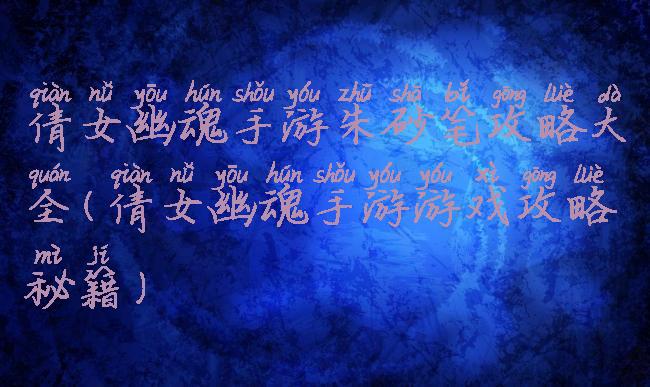 qiàn nǚ yōu hún shǒu yóu zhū shā bǐ gōng lüè dà
倩女幽魂手游朱砂笔攻略大
quán qiàn nǚ yōu hún shǒu yóu yóu xì gōng lüè
全(倩女幽魂手游游戏攻略
mì jí
秘籍)